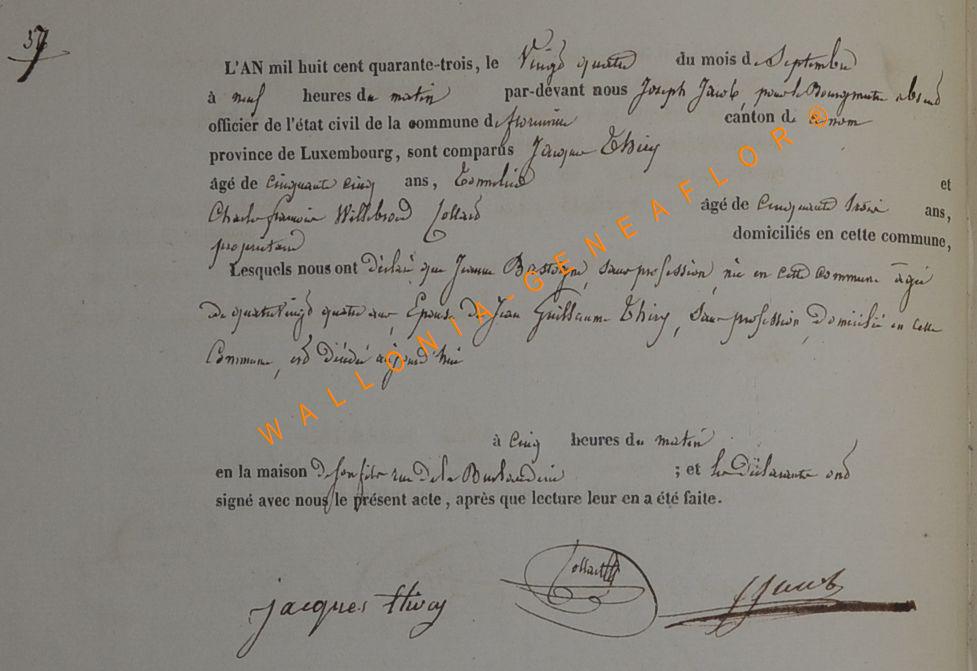 37
L'AN mil huit cent quarante-trois, le Vingt quatre du mois de Septembre
à neuf heures du matin par-devant nous Joseph Jacob, pour le Bourgmestre absent
officier de l'état civil de la commune de florenville canton d
province de Luxembourg, sont comparus Jacques Thiry
âgé de Cinquante Cinq ans, et
Charles françois Willibrord Collard âgé de Cinquante trois ans,
propriétaire domiciliés en cette commune,
Lesquels nous ont déclaré que Jeanne Bastogne, sans profession, née en cette commune âgée
de quatre vingt quatre ans, Epouse de Jean Guillaume Thiry, sans profession, domicilié en cette
Commune, est décédée aujourd'hui
à Cinq heures du matin
en la maison de son fils rue de la ; et les déclarants ont
signé avec nous le présent acte, après que lecture leur en a été faite.
jacques thiry Collard J Jacob
WALLONIA-GENEAFLOR ©